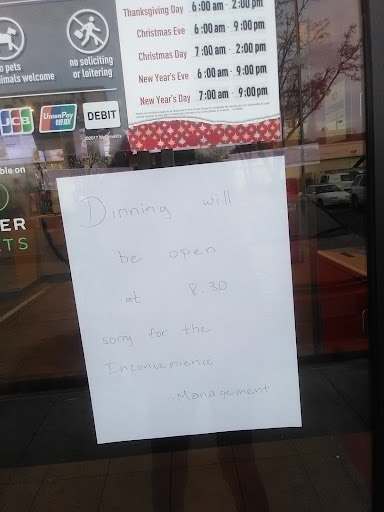 Thanksgiving Day 6:00 am - 2:00 pm
Christmas Eve 6:00 am - 9:00 pm
Christmas Day 7:00 am - 2:00 pm
New Year's Eve 6:00 am - 9:00 pm
New Year's Day 7:00 am - 9:00 pm
o pets
nimals welcome
no soliciting
or loitering
JCB
UnionPay
银联
DEBIT
ble on
ER
TS
Dinning will
be open
at 8.30
sorry for the
Inconvenience
-Management